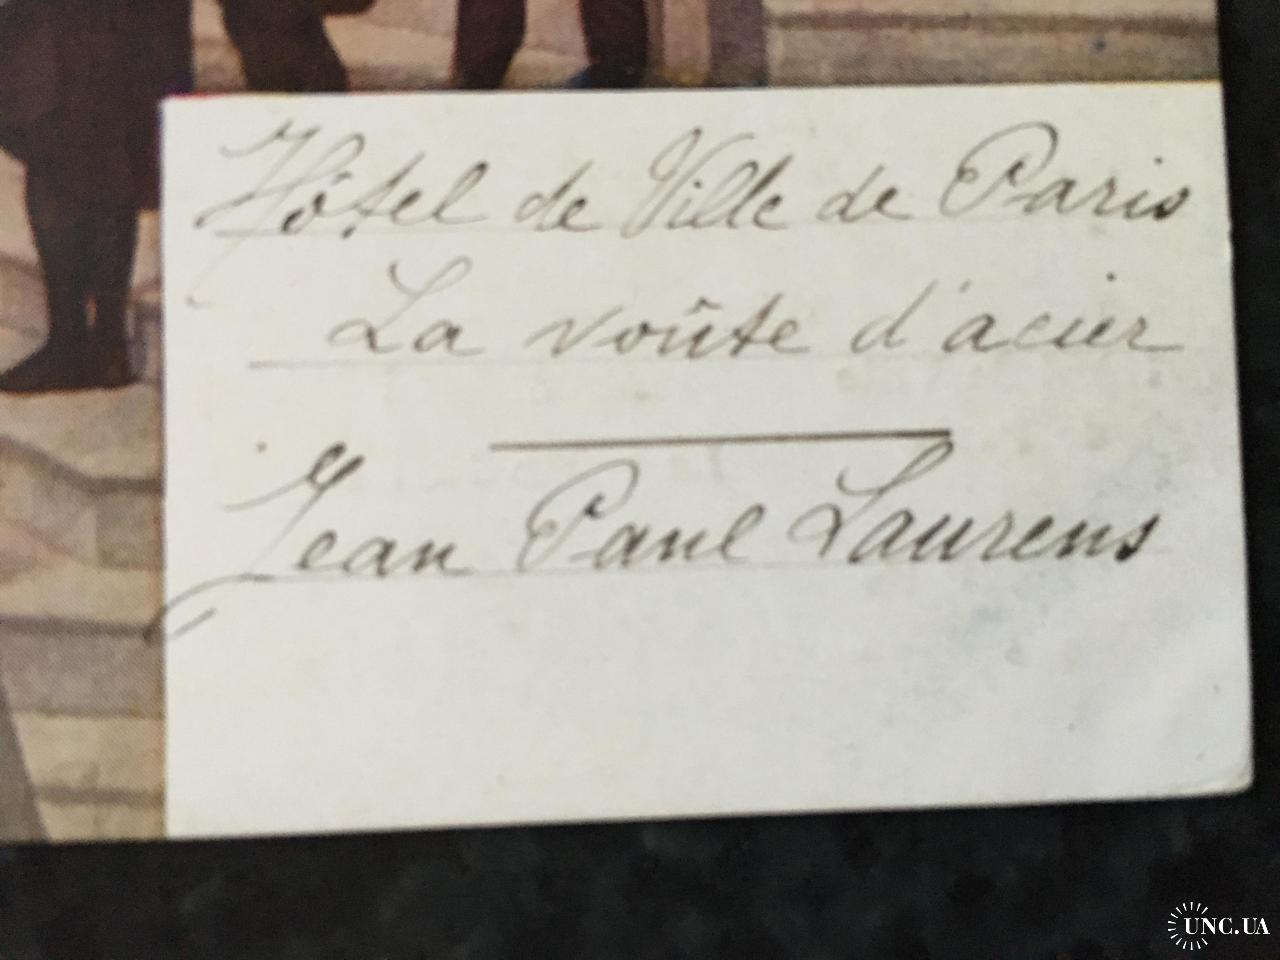 Hôtel de Ville de Paris
La voûte d'acier
Jean Paul Laurens
UNC.UA